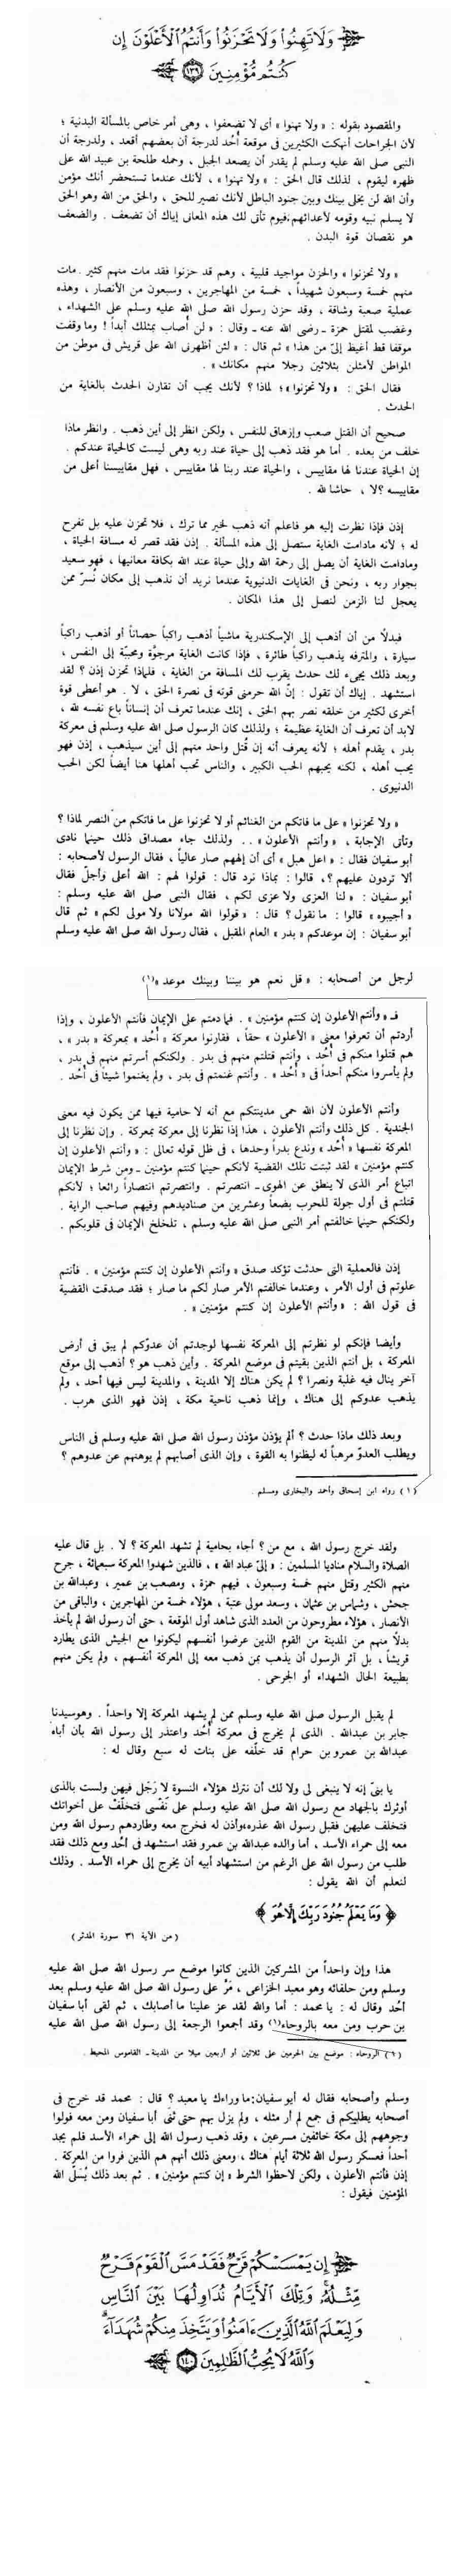 وَلَا تَهِنُوا۟ وَلَا تَحْزَنُوا۟ وَأَنتُمُ ٱلْأَعْلَوْنَ إِن
كُنتُم مُّؤْمِنِينَ ١٣٩
والمقصود بقوله : « ولا تهنوا » أى لا تضعفوا ، وهى أمر خاص بالمسألة البدنية ؛
لأن الجراحات أنهكت الكثيرين فى موقعة أُحُد لدرجة أن بعضهم أقعد ، ولدرجة أن
النبى صلى الله عليه وسلم لم يقدر أن يصعد الجبل ، وحمله طلحة بن عبيد الله على
ظهره ليقوم ، لذلك قال الحق : « ولا تهنوا » ، لأنك عندما تستحضر أنك مؤمن
وأن الله لن يخلى بينك وبين جنود الباطل لأنك نصير للحق ، والحق من الله وهو الحق
لا يسلم نبيه وقومه لأعدائهم ، فيوم تأتى لك هذه المعانى إياك أن تضعف . والضعف
هو نقصان قوة البدن .
« ولا تحزنوا » والحزن مواجيد قلبية ، وهم قد حزنوا فقد مات منهم كثير . مات
منهم خمسة وسبعون شهيداً ، خمسة من المهاجرين ، وسبعون من الأنصار ، وهذه
عملية صعبة وشاقة ، وقد حزن رسول الله صلى الله عليه وسلم على الشهداء ،
وغضب لمقتل حمزة ـ رضى الله عنه ـ وقال : « لن أُصاب بمثلك أبداً ! وما وقفت
موقفا قط أغيظ إلىّ من هذا » ثم قال : « لئن أظهرنى الله على قريش فى موطن من
المواطن لأمثلن بثلاثين رجلا منهم مكانك » .
فقال الحق : « ولا تحزنوا » ؛ لماذا ؟ لأنك يجب أن تقارن الحدث بالغاية من
الحدث .
صحيح أن القتل صعب وإزهاق للنفس ، ولكن انظر إلى أين ذهب . وانظر ماذا
خلف من بعده . أما هو فقد ذهب إلى حياة عند ربه وهى ليست كالحياة عندكم .
إن الحياة عندنا لها مقاييس ، والحياة عند ربنا لها مقاييس ، فهل مقاييسنا أعلى من
مقاييسه ؟ لا ، حاشا لله .
إذن فإذا نظرت إليه هو فاعلم أنه ذهب لخير مما ترك ، فلا تحزن عليه بل تفرح
له ؛ لأنه مادامت الغاية ستصل إلى هذه المسألة . إذن فقد قصر له مسافة الحياة ،
ومادامت الغاية أن يصل إلى رحمة الله وإلى حياة عند الله بكافة معانيها ، فهو سعيد
بجوار ربه ، ونحن فى الغايات الدنيوية عندما نريد أن نذهب إلى مكان نُسرّ ممن
يعجل لنا الزمن لنصل إلى هذا المكان .
فبدلًا من أن أذهب إلى الإسكندرية ماشياً أذهب راكباً حصاناً أو أذهب راكباً
سيارة ، والمترفه يذهب راكباً طائرة ، فإذا كانت الغاية مرجوّة ومحببّة إلى النفس ،
وبعد ذلك يجىء لك حدث يقرب لك المسافة من الغاية ، فلماذا تحزن إذن ؟ لقد
استشهد . إياك أن تقول : إنّ الله حرمنى قوته فى نصرة الحق ، لا . هو أعطى قوة
أخرى لكثير من خلقه نصر بهم الحق ، إنك عندما تعرف أن إنساناً باع نفسه لله ،
لابد أن تعرف أن الغاية عظيمة ؛ ولذلك كان الرسول صلى الله عليه وسلم فى معركة
بدر ، يقدم أهله ؛ لأنه يعرف أنه إن قُتل واحد منهم إلى أين سيذهب ، إذن فهو
يحب أهله ، لكنه يحبهم الحب الكبير ، والناس تحب أهلها هنا أيضاً لكن الحب
الدنيوى .
« ولا تحزنوا » على ما فاتكم من الغنائم أو لا تحزنوا على ما فاتكم من النصر لماذا ؟
وتأتى الإجابة ، « وأنتم الأعلون » . . ولذلك جاء مصداق ذلك حينما نادى
أبو سفيان فقال : « اعل هبل » أى أن إلههم صار عالياً ، فقال الرسول لأصحابه :
ألا تردون عليهم ؟ ، قالوا : بماذا نرد قال : قولوا لهم : الله أعلى وأجلّ فقال
أبو سفيان : « لنا العزى ولا عزى لكم ، فقال النبى صلى الله عليه وسلم :
« أجيبوه » قالوا : ما نقول ؟ قال : « قولوا الله مولانا ولا مولى لكم » ثم قال
أبو سفيان : إن موعدكم « بدر » العام المقبل ، فقال رسول الله صلى الله عليه وسلم
لرجل من أصحابه : « قل نعم هو بيننا وبينك موعد »(١)
فـ « وأنتم الأعلون إن كنتم مؤمنين » . فما دمتم على الإيمان فأنتم الأعلون ، وإذا
أردتم أن تعرفوا معنى « الأعلون » حقاً ، فقارنوا معركة « أُحُد » بمعركة « بدر » ،
هم قتلوا منكم فى أُحُد ، وأنتم قتلتم منهم فى بدر . ولكنكم أسرتم منهم فى بدر ،
ولم يأسروا منكم أحداً فى « أُحُد » . وأنتم غنمتم فى بدر ، ولم يغنموا شيئاً فى أُحُد .
وأنتم الأعلون لأن الله حمى مدينتكم مع أنه لا حامية فيها ممن يكون فيه معنى
الجندية . كل ذلك وأنتم الأعلون ، هذا إذا نظرنا إلى معركة بمعركة . وإن نظرنا إلى
المعركة نفسها « أُحُد » وندع بدراً وحدها ، فى ظل قوله تعالى : « وأنتم الأعلون إن
كنتم مؤمنين » لقد ثبتت تلك القضية لأنكم حينما كنتم مؤمنين ـ ومن شرط الإيمان
اتباع أمر الذى لا ينطق عن الهوى ـ انتصرتم . وانتصرتم انتصاراً رائعا ؛ لأنكم
قتلتم فى أول جولة للحرب بضعاً وعشرين من صناديدهم وفيهم صاحب الراية .
ولكنكم حينما خالفتم أمر النبى صلى الله عليه وسلم ، تلخلخ الإيمان فى قلوبكم .
إذن فالعملية التى حدثت تؤكد صدق « وأنتم الأعلون إن كنتم مؤمنين » . فأنتم
علوتم فى أول الأمر ، وعندما خالفتم الأمر صار لكم ما صار ؛ فقد صدقت القضية
فى قول الله : « وأنتم الأعلون إن كنتم مؤمنين » .
وأيضا فإنكم لو نظرتم إلى المعركة نفسها لوجدتم أن عدوّكم لم يبق فى أرض
المعركة ، بل أنتم الذين بقيتم فى موضع المعركة . وأين ذهب هو ؟ أذهب إلى موقع
آخر ينال فيه غلبة ونصرا ؟ لم يكن هناك إلا المدينة ، والمدينة ليس فيها أحد ، ولم
يذهب عدوكم إلى هناك ، وإنما ذهب ناحية مكة ، إذن فهو الذى هرب .
وبعد ذلك ماذا حدث ؟ ألم يؤذن مؤذن رسول الله صلى الله عليه وسلم فى الناس
ويطلب العدوّ مرهباً له ليظنوا به القوة ، وإن الذى أصابهم لم يوهنهم عن عدوهم ؟
(١) رواه ابن إسحاق وأحمد والبخارى ومسلم .
ولقد خرج رسول الله ، مع من ؟ أجاء بحامية لم تشهد المعركة ؟ لا . بل قال عليه
الصلاة والسلام مناديا المسلمين : « إلىّ عباد الله » ، فالذين شهدوا المعركة سبعمائة ، جرح
منهم الكثير وقتل منهم خمسة وسبعون ، فيهم حمزة ، ومصعب بن عمير ، وعبدالله بن
جحش ، وشماس بن عثمان ، وسعد مولى عتبة ، هؤلاء خمسة من المهاجرين ، والباقى من
الأنصار ، هؤلاء مطروحون من العدد الذى شاهد أول الموقعة ، حتى أن رسول الله لم يأخذ
بدلًا منهم من المدينة من القوم الذين عرضوا أنفسهم ليكونوا مع الجيش الذى يطارد
قريشاً ، بل آثر الرسول أن يذهب بمن ذهب معه إلى المعركة أنفسهم ، ولم يكن منهم
بطبيعة الحال الشهداء أو الجرحى .
لم يقبل الرسول صلى الله عليه وسلم ممن لم يشهد المعركة إلا واحداً . وهو سيدنا
جابر بن عبدالله . الذى لم يخرج فى معركة أُحُد واعتذر إلى رسول الله بأن أباه
عبدالله بن عمرو بن حرام قد خلّفه على بنات له سبع وقال له :
يا بنىّ إنه لا ينبغى لى ولا لك أن نترك هؤلاء النسوة لا رَجُل فيهن ولست بالذى
أوثرك بالجهاد مع رسول الله صلى الله عليه وسلم على نَفْسى فتخلّفْ على أخواتك
فتخلف عليهن فقبل رسول الله عذره ، وأذن له فخرج معه وطاردهم رسول الله ومن
معه إلى حمراء الأسد ، أما والده عبدالله بن عمرو فقد استشهد فى أُحُد ومع ذلك فقد
طلب من رسول الله على الرغم من استشهاد أبيه أن يخرج إلى حمراء الأسد . وذلك
لنعلم أن الله يقول :
﴿ وَمَا يَعْلَمُ جُنُودَ رَبِّكَ إِلَّا هُوَ ﴾
( من الآية ٣١ سورة المدثر )
هذا وإن واحداً من المشركين الذين كانوا موضع سر رسول الله صلى الله عليه
وسلم ومن حلفائه وهو معبد الخزاعى ، مَرّ على رسول الله صلى الله عليه وسلم بعد
أُحُد وقال له : يا محمد : أما والله لقد عز علينا ما أصابك ، ثم لقى أبا سفيان
بن حرب ومن معه بالروحاء(١) وقد أجمعوا الرجعة إلى رسول الله صلى الله عليه
(١) الروحاء : موضع بين الحرمين على ثلاثين أو أربعين ميلا من المدينة ـ القاموس المحيط .
وسلم وأصحابه فقال له أبو سفيان : ما وراءك يا معبد ؟ قال : محمد قد خرج فى
أصحابه يطلبكم فى جمع لم أر مثله ، ولم يزل بهم حتى ثنى أبا سفيان ومن معه فولوا
وجوههم إلى مكة خائفين مسرعين ، وقد ذهب رسول الله إلى حمراء الأسد فلم يجد
أحداً فعسكر رسول الله ثلاثة أيام هناك ، ومعنى ذلك أنهم هم الذين فروا من المعركة .
إذن فأنتم الأعلون ، ولكن لاحظوا الشرط « إن كنتم مؤمنين » . ثم بعد ذلك يُسَلّى الله
المؤمنين فيقول :
إِن يَمْسَسْكُمْ قَرْحٌ فَقَدْ مَسَّ ٱلْقَوْمَ قَرْحٌ
مِّثْلُهُۥ وَتِلْكَ ٱلْأَيَّامُ نُدَاوِلُهَا بَيْنَ ٱلنَّاسِ
وَلِيَعْلَمَ ٱللَّهُ ٱلَّذِينَ ءَامَنُوا۟ وَيَتَّخِذَ مِنكُمْ شُهَدَآءَ
وَٱللَّهُ لَا يُحِبُّ ٱلظَّٰلِمِينَ ١٤٠